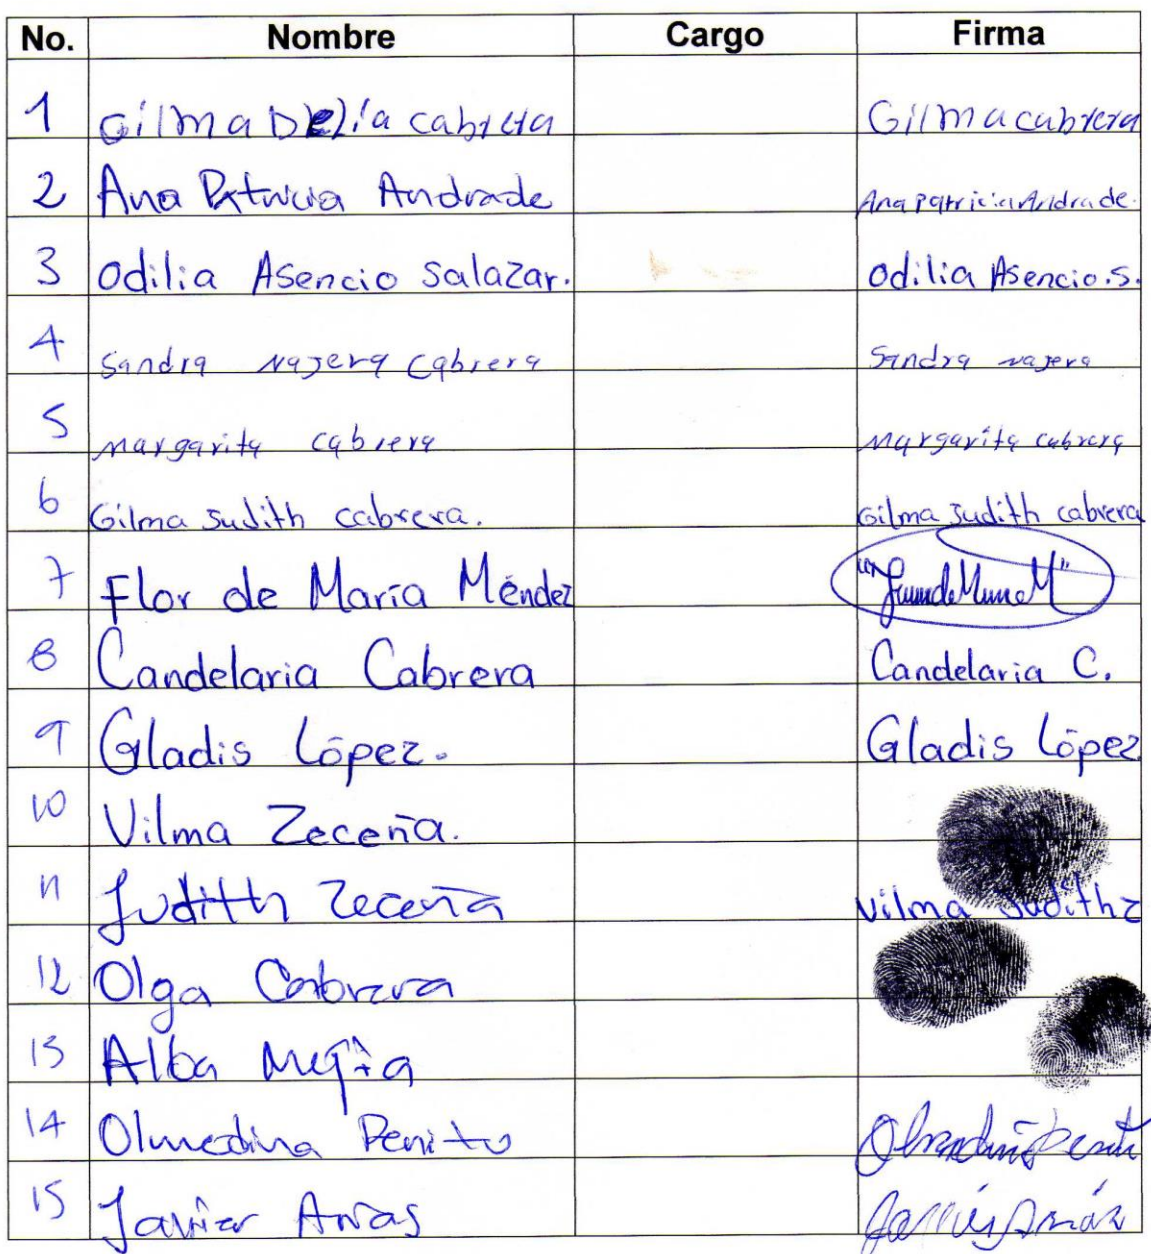 No. Nombre Cargo Firma
1 Gilma Delia Cabrera Gilma cabrera
2 Ana Patricia Andrade Ana Patricia Andrade.
3 Odilia Asencio Salazar. Odilia Asencio.S.
4 Sandra Najera Cabrera Sandra najera
5 margarita cabrera margarita cabrera
6 Gilma Judith cabrera. Gilma Judith cabrera
7 Flor de María Méndez
8 Candelaria Cabrera Candelaria C.
9 Gladis López. Gladis López
10 Vilma Zeceña.
11 Judith Zeceña Vilma Judith Z
12 Olga Cabrera
13 Alba Mejía
14 Olmedina
15 Javier Arias